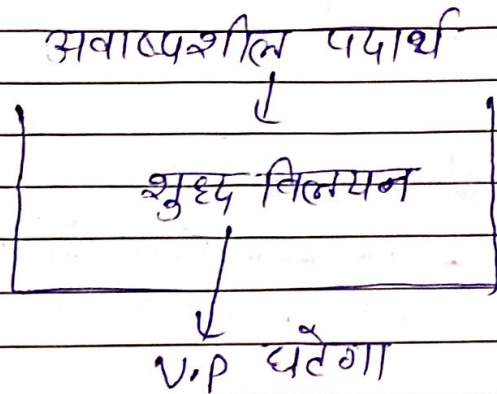 अवाष्पशील पदार्थ
शुध्द विलयन
V.P घटेगा